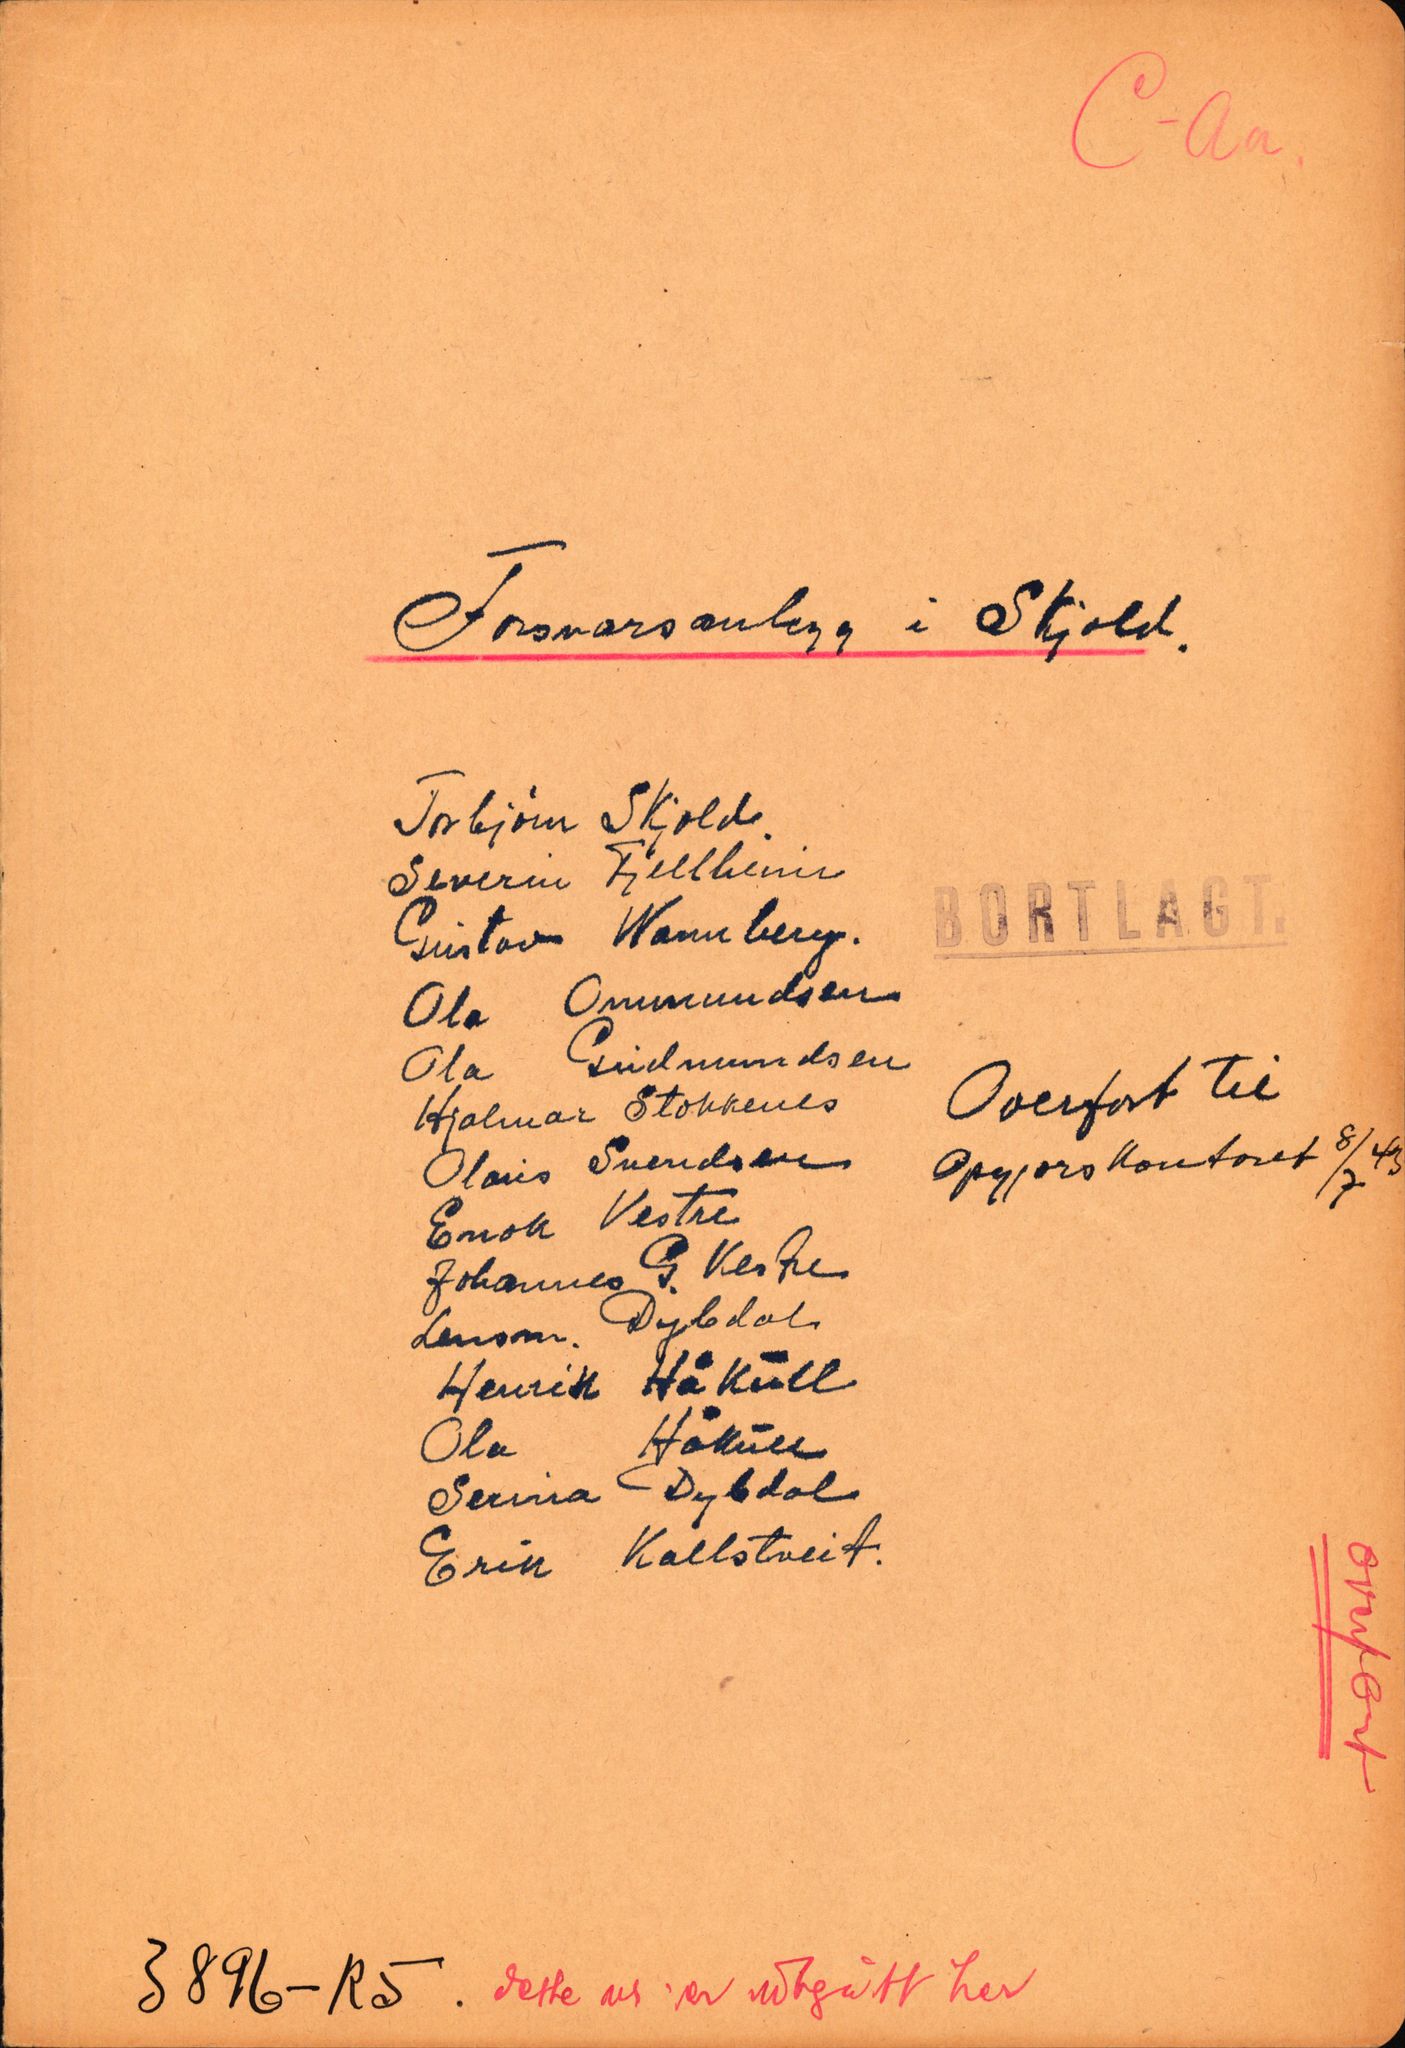 C-Aa.
Forsvarsanlegg i Skjold.
Torbjörn Skjold.
Severin Fjellheim
Gustav Wannberg.
BORTLAGT.
Ola Ommundsen
Ola Gudmundsen
Hjalmar Stokkenes
Overfört til
Olaus Svendsen
opgjörskontoret 8/7 43
Enok Vestre
Johannes G. Vestre
Lensm. Dybdal
Henrik Håkull
Ola Håkull
Serina Dybdal
Erik Kallstveit.
overfört
3896-R5. dette nr er utgått her